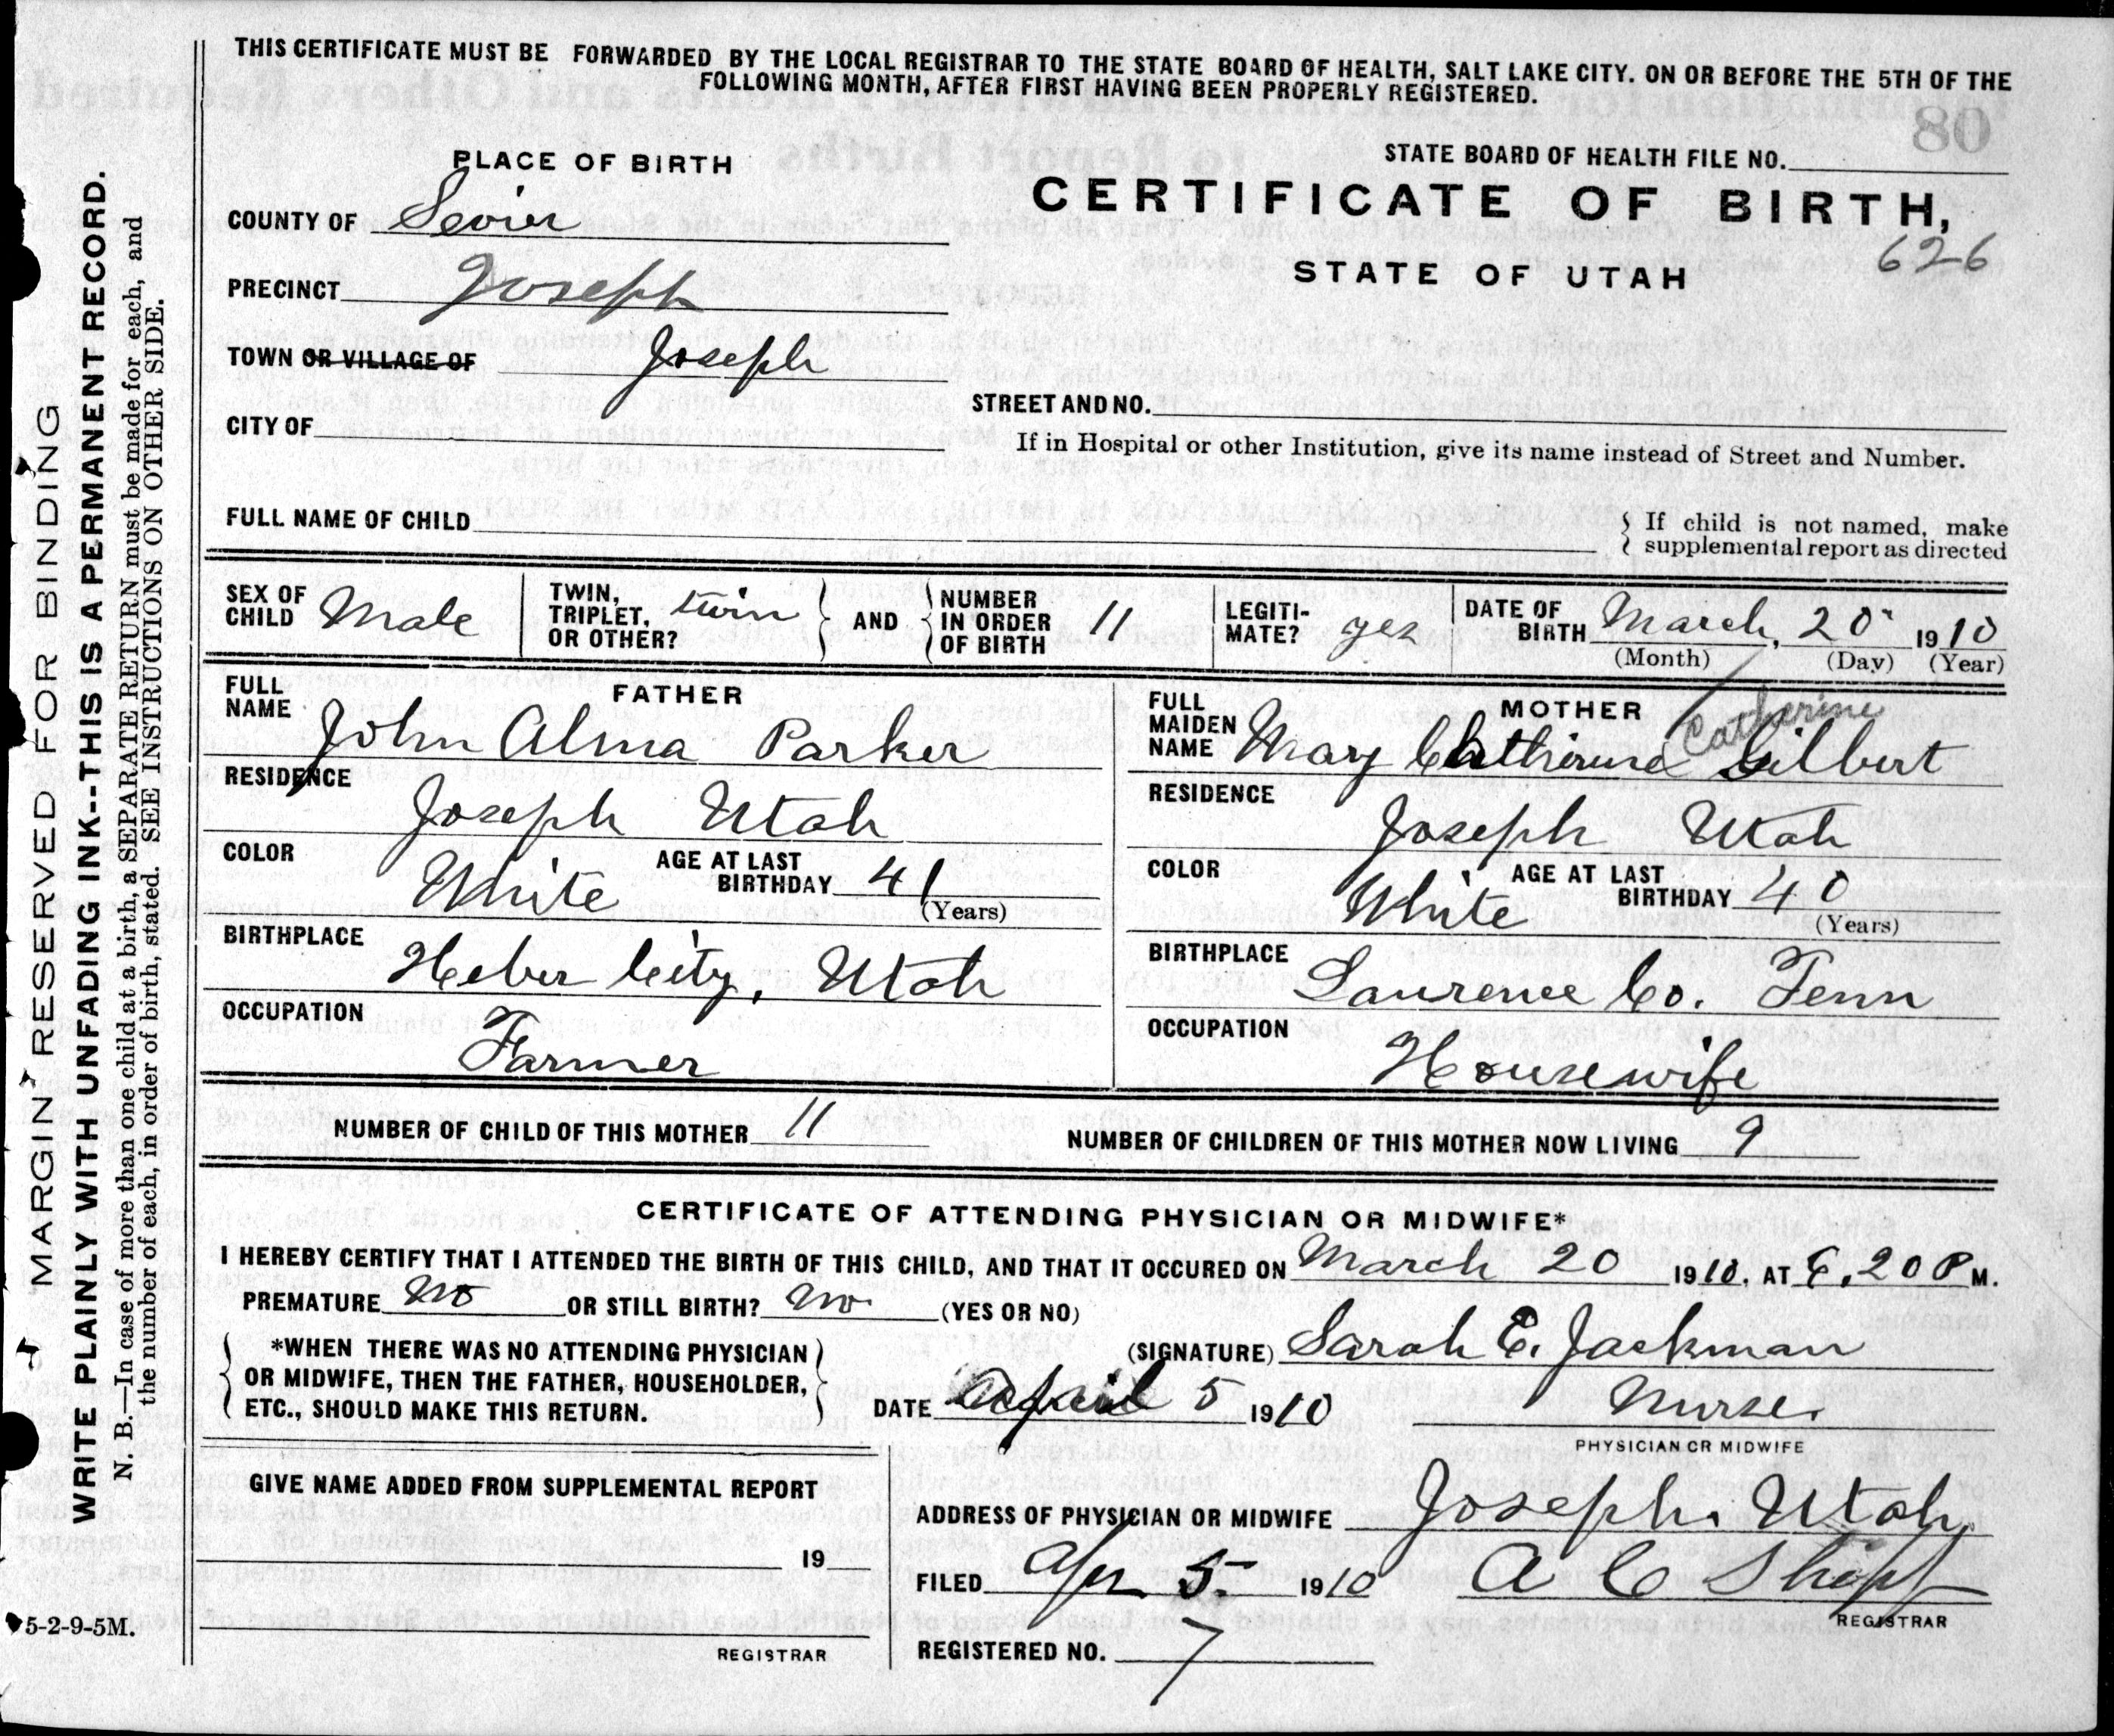 THIS CERTIFICATE MUST BE FORWARDED BY THE LOCAL REGISTRAR TO THE STATE BOARD OF HEALTH, SALT LAKE CITY. ON OR BEFORE THE 5TH OF THE
FOLLOWING MONTH, AFTER FIRST HAVING BEEN PROPERLY REGISTERED.
80
PLACE OF BIRTH
STATE BOARD OF HEALTH FILE NO.
CERTIFICATE OF BIRTH,
COUNTY OF Sevier
626
STATE OF UTAH
PRECINCT Joseph
TOWN OR VILLAGE OF Joseph
STREET AND NO.
CITY OF
If in Hospital or other Institution, give its name instead of Street and Number.
FULL NAME OF CHILD
{ If child is not named, make
supplemental report as directed
SEX OF CHILD Male
TWIN, TRIPLET, OR OTHER? twin } AND { NUMBER IN ORDER OF BIRTH 11
LEGITI-MATE? yes
DATE OF BIRTH March, 20 1910
(Month) (Day) (Year)
FATHER
FULL NAME John Alma Parker
RESIDENCE Joseph Utah
COLOR White AGE AT LAST BIRTHDAY 41
(Years)
BIRTHPLACE Heber City, Utah
OCCUPATION Farmer
MOTHER
Catherine
FULL MAIDEN NAME Mary Catherine Gilbert
RESIDENCE Joseph Utah
COLOR White AGE AT LAST BIRTHDAY 40
(Years)
BIRTHPLACE Laurence Co. Tenn
OCCUPATION Housewife
NUMBER OF CHILD OF THIS MOTHER 11
NUMBER OF CHILDREN OF THIS MOTHER NOW LIVING 9
CERTIFICATE OF ATTENDING PHYSICIAN OR MIDWIFE*
I HEREBY CERTIFY THAT I ATTENDED THE BIRTH OF THIS CHILD, AND THAT IT OCCURED ON March 20 1910, AT 20 P M.
PREMATURE No OR STILL BIRTH? no (YES OR NO)
{ *WHEN THERE WAS NO ATTENDING PHYSICIAN
OR MIDWIFE, THEN THE FATHER, HOUSEHOLDER,
ETC., SHOULD MAKE THIS RETURN. }
(SIGNATURE) Sarah E. Jackman
DATE April 5 1910
Nurse.
PHYSICIAN OR MIDWIFE
GIVE NAME ADDED FROM SUPPLEMENTAL REPORT
19
REGISTRAR
ADDRESS OF PHYSICIAN OR MIDWIFE Joseph. Utah
FILED Apr 5. 1910 A C
REGISTRAR
REGISTERED NO. 7
MARGIN RESERVED FOR BINDING
WRITE PLAINLY WITH UNFADING INK--THIS IS A PERMANENT RECORD.
N. B.—In case of more than one child at a birth, a SEPARATE RETURN must be made for each, and
the number of each, in order of birth, stated. SEE INSTRUCTIONS ON OTHER SIDE.
5-2-9-5M.